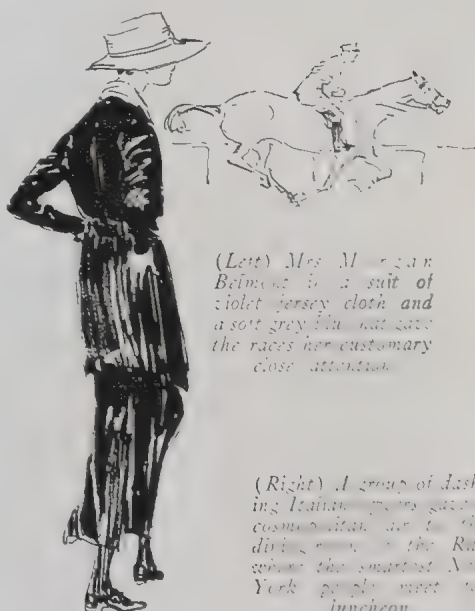 (Left) Mrs. Morgan
Belmont in a suit of
violet jersey cloth and
a soft grey hat gave
the races her customary
close attention
(Right) A group of dash-
ing Italian gave
cosmopolitan air to
dining room
where the smartest
York people meet
luncheon